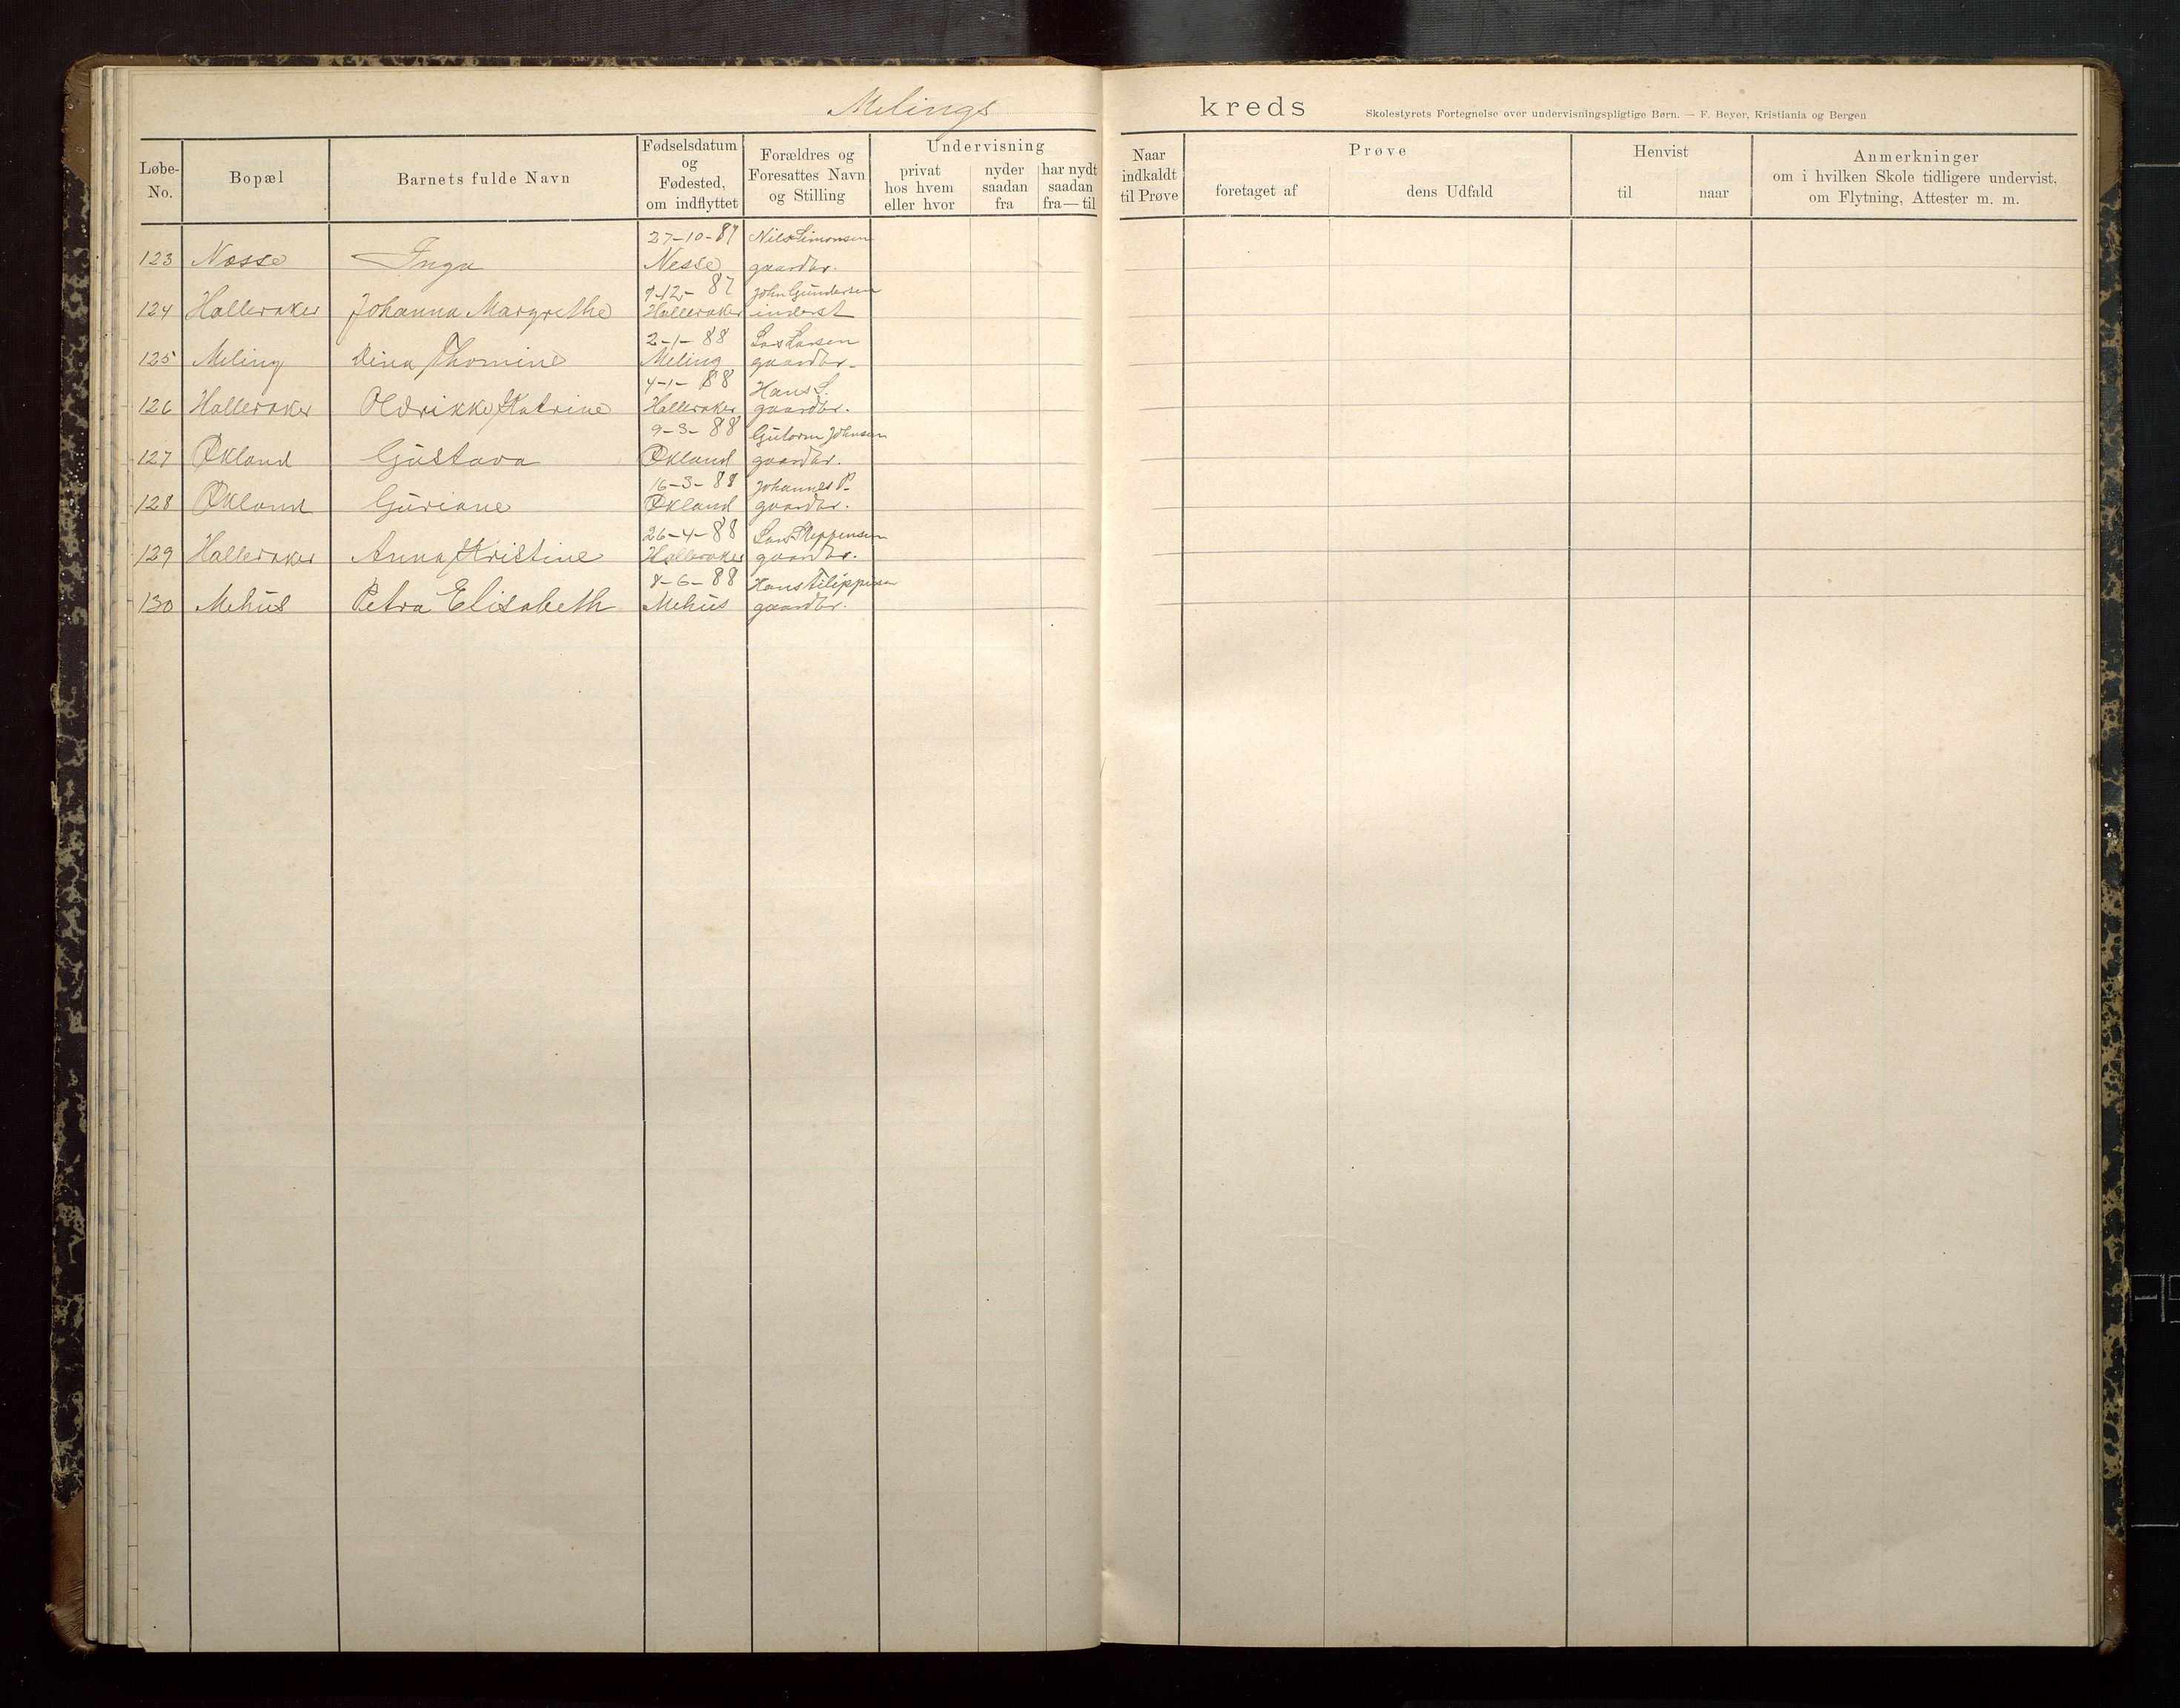 Melings kreds
Skolestyrets Fortegnelse over undervisningspligtige Børn. — F. Beyer, Kristiania og Bergen
Løbe-No.
Bopæl
Barnets fulde Navn
Fødselsdatum og Fødested, om indflyttet
Forældres og Foresattes Navn og Stilling
Undervisning
privat hos hvem eller hvor
nyder saadan fra
har nydt saadan fra — til
Naar indkaldt til Prøve
Prøve
foretaget af
dens Udfald
Henvist
til
naar
Anmerkninger
om i hvilken Skole tidligere undervist,
om Flytning, Attester m. m.
27-10-87 Nils Simonsen
123 Nesse Inga Nesse gaardbr.
9-12- 87 John Gundersen
124 Halleraker Johanna Margrethe Halleraker inderst
2-1-88 Lars Larsen
125 Meling Dina Thomine Meling gaardbr.
4-1-88 Hans L.
126 Halleraker Oldrikke Katrine Halleraker gaardbr.
9-3-88 Gutorm Johnsen
127 Økland Gustava Økland gaardbr.
16-3-88 Johannes P.
128 Økland Guriane Økland gaardbr.
26-4-88 Lars
129 Halleraker Anna Kristine Halleraker gaardbr.
8-6-88 Hans Filippsen
130 Mehus Petra Elisabeth Mehus gaardbr.